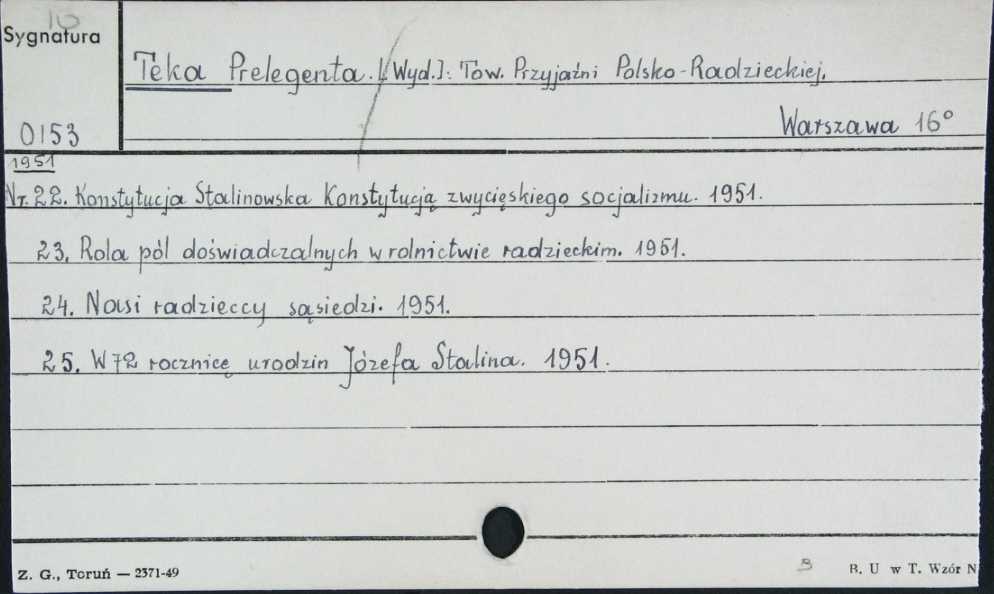 10
Sygnatura
Teka Prelegenta. [Wyd.]: Tow. Przyjaźni Polsko-Radzieckiej.
0153
Warszawa 16°
1951
Nr. 22. Konstytucja Stalinowska Konstytucją zwycięskiego socjalizmu. 1951.
23. Rola pól doświadczalnych w rolnictwie radzieckim. 1951.
24. Nasi radzieccy sąsiedzi. 1951.
25. W 72 rocznicę urodzin Józefa Stalina. 1951.
Z. G., Toruń — 2371-49
B
B. U w T. Wzór N